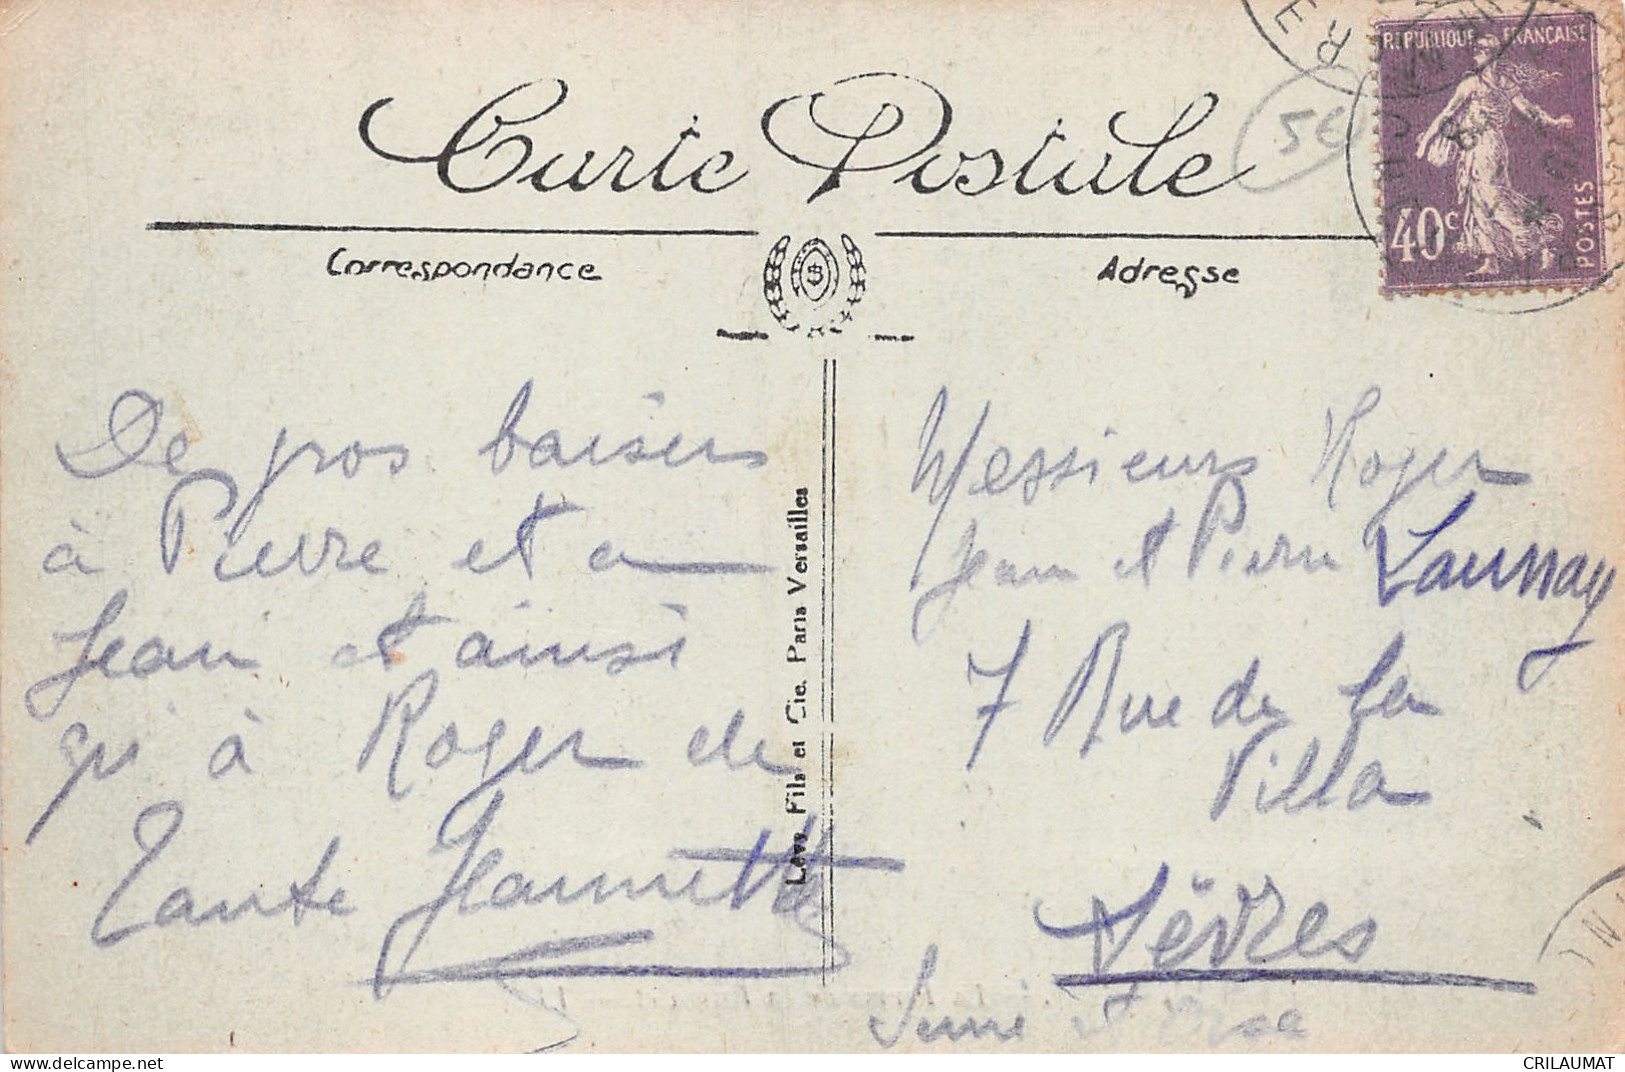 Carte Postale
Correspondance
Adresse
REPUBLIQUE FRANÇAISE
40c
POSTES
5€
De gros baisers
à Pierre et a
Jean et ainsi
qu'à Roger de
Tante Jeannette
Lévy Fils et Cie. Paris Versailles
Messieurs Roger
Jean et Pierre Launay
7 Rue de la
Villa
Sèvres
Seine et Oise
delcampe.net
CRILAUMAT